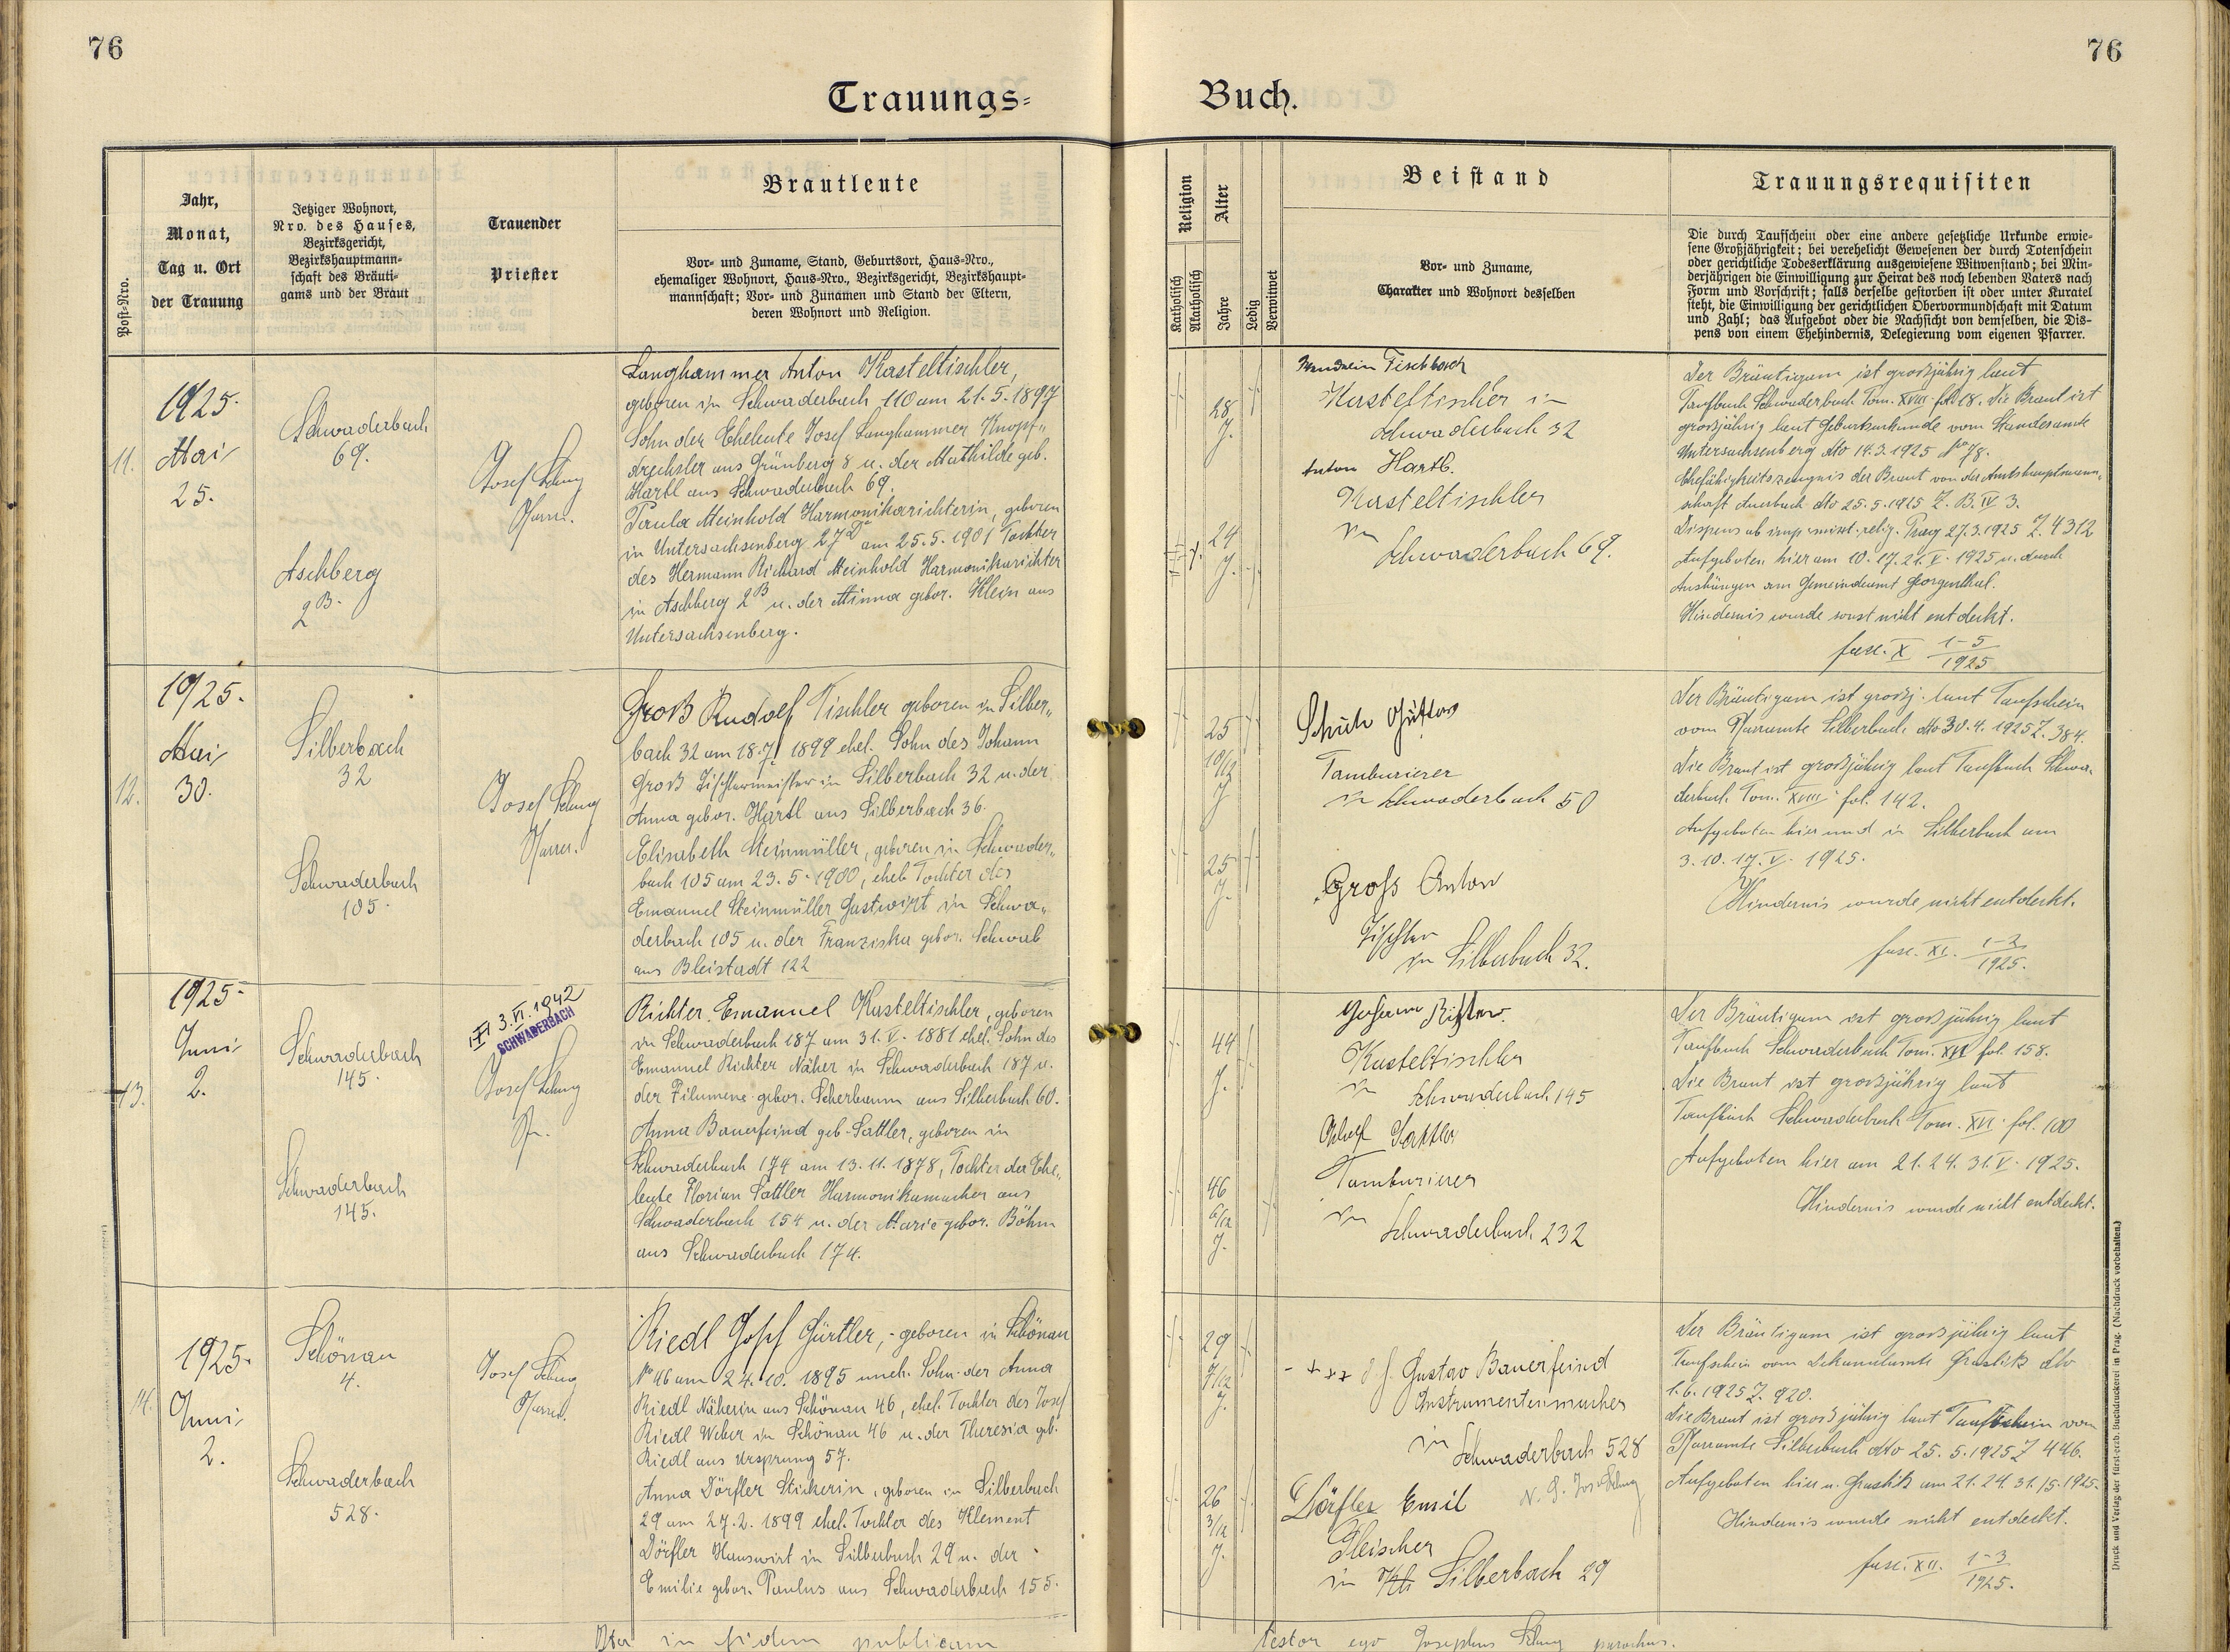 76
76
Trauungs=
Buch.
Post-Nro.
Jahr,
Monat,
Tag u. Ort
der Trauung
Jetziger Wohnort,
Nro. des Hauses,
Bezirksgericht,
Bezirkshauptmann-
schaft des Bräuti-
gams und der Braut
Trauender
Priester
Brautleute
Vor- und Zuname, Stand, Geburtsort, Haus-Nro.,
ehemaliger Wohnort, Haus-Nro., Bezirksgericht, Bezirkshaupt-
mannschaft; Vor- und Zunamen und Stand der Eltern,
deren Wohnort und Religion.
Religion
Katholisch
Akatholisch
Alter
Jahre
Ledig
Verwitwet
Beistand
Vor- und Zuname,
Charakter und Wohnort desselben
Trauungsrequisiten
Die durch Taufschein oder eine andere gesetzliche Urkunde erwie-
sene Großjährigkeit; bei verehelicht Gewesenen der durch Totenschein
oder gerichtliche Todeserklärung ausgewiesene Witwenstand; bei Min-
derjährigen die Einwilligung zur Heirat des noch lebenden Vaters nach
Form und Vorschrift; falls derselbe gestorben ist oder unter Kuratel
steht, die Einwilligung der gerichtlichen Obervormundschaft mit Datum
und Zahl; das Aufgebot oder die Nachsicht von demselben, die Dis-
pens von einem Ehehindernis, Delegierung vom eigenen Pfarrer.
11.
1925.
Mai
25.
Schwaderbach
69.
Aschberg
2 B.
Josef
Pfarrer.
Langhammer Anton Kasteltischler,
geboren in Schwaderbach 110 am 21. 5. 1897
Sohn der Eheleute Josef Langhammer Knopf„
drechsler aus Grünberg 8 u. der Mathilde geb.
Hartl aus Schwaderbach 69.
Paula Meinhold Harmonikarichterin, geboren
in Untersachsenberg 27 D am 25. 5. 1901 Tochter
des Hermann Richard Meinhold Harmonikarichter
in Aschberg 2 B u. der Minna gebor. Klein aus
Untersachsenberg.
28
J.
24
J.
Fischbach
Kasteltischler in
Schwaderbach 32
Anton Hartl.
Kasteltischler
in
Schwaderbach 69.
Der Bräutigam ist grosjährig laut
Taufbuch Schwaderbach Tom. XVIII fol. 18. Die Braut ist
grosjährig laut Geburtsurkunde vom Standesamte
Untersachsenberg dto 14. 3. 1925 No 78.
Ehefähigkeitszeugnis der Braut von der Amtshauptmann„
schaft Auerbach dto 25. 5. 1925 Z. B. IV 3.
Dispens ab imp. mixt. relig. Prag 27. 3. 1925 Z. 4312
Aufgeboten hier am 10. 17. 21. V. 1925 u. durch
Aushängen am Gemeindeamt Georgenthal.
Hindernis wurde sonst nicht entdeckt.
fasc. X 1-5
1925
12.
1925.
Mai
30.
Silberbach
32
Schwaderbach
105.
Josef
Pfarrer.
Groß Rudolf Tischler geboren in Silber„
bach 32 am 18. 7. 1899 ehel. Sohn des Johann
Groß Tischlermeister in Silberbach 32 u. der
Anna gebor. Hartl aus Silberbach 36.
Elisabeth Steinmüller, geboren in Schwader„
bach 105 am 23. 5. 1900, ehel. Tochter des
Emanuel Steinmüller Gastwirt in Schwa„
derbach 105 u. der Franziska gebor. Schwab
aus Bleistadt 122
25
10/12
J
25
J.
Gustav
Tamburierer
in Schwaderbach 50
Groß Anton
Tischler
in Silberbach 32.
Der Bräutigam ist grosj. laut Taufschein
vom Pfarramte Silberbach dto 30. 4. 1925 Z. 384.
Die Braut ist grosjährig laut Taufbuch Schwa„
derbach Tom. XVIII fol. 142.
Aufgeboten hier und in Silberbach am
3. 10. 17. V. 1925.
Hindernis wurde nicht entdeckt.
fasc. XI. 1-2
1925.
13.
1925.
Juni
2.
Schwaderbach
145.
Schwaderbach
145.
3. VI. 1942
SCHWADERBACH
Josef
Pfr.
Richter Emanuel Kasteltischler, geboren
in Schwaderbach 187 am 31. V. 1881 ehel. Sohn des
Emanuel Richter Näher in Schwaderbach 187 u.
der Filumene gebor. Scherbaum aus Silberbach 60.
Anna Bauerfeind geb. Sattler, geboren in
Schwaderbach 174 am 13. 11. 1878, Tochter der Ehe„
leute Florian Sattler Harmonikamacher aus
Schwaderbach 154 u. der Marie gebor. Böhm
aus Schwaderbach 174.
44
J.
46
6/12
J.
Johann Richter.
Kasteltischler
in
Schwaderbach 145
Adolf Sattler
Tamburierer
in
Schwaderbach 232
Der Bräutigam ist grosjährig laut
Taufbuch Schwaderbach Tom. XVI fol. 158.
Die Braut ist grosjährig laut
Taufbuch Schwaderbach Tom. XVI fol. 100
Aufgeboten hier am 21. 24. 31. V. 1925.
Hindernis wurde nicht entdeckt.
14.
1925.
Juni
2.
Schönau
4.
Schwaderbach
528.
Josef
Pfarrer.
Riedl Josef Gürtler, geboren in Schönau
No 46 am 24. 10. 1895 uneh. Sohn der Anna
Riedl Näherin aus Schönau 46, ehel. Tochter des Josef
Riedl Weber in Schönau 46 u. der Theresia geb.
Riedl aus Ursprung 57.
Anna Dörfler Stickerin, geboren in Silberbach
29 am 27. 2. 1899 ehel. Tochter des Klement
Dörfler Hauswirt in Silberbach 29 u. der
Emilie gebor. Paulus aus Schwaderbach 155.
29
7/12
J.
26
3/12
J.
+++ d. f. Gustav Bauerfeind
Instrumentenmacher
in
Schwaderbach 528
Dörfler Emil
Fleischer
in Silberbach 29
Der Bräutigam ist grosjährig laut
Taufschein vom Dekanalamte Graslitz dto
1. 6. 1925 Z. 920.
Die Braut ist grosjährig laut Taufschein vom
Pfarramte Silberbach dto 25. 5. 1925 Z 446.
Aufgeboten hier u. Graslitz am 21. 24. 31./5. 1925.
Hindernis wurde nicht entdeckt.
fasc. XII. 1-3
1925.
in fidem publicam
testor ego Josephus parochus.
Druck und Verlag der fürst-erzb. Buchdruckerei in Prag. (Nachdruck vorbehalten.)